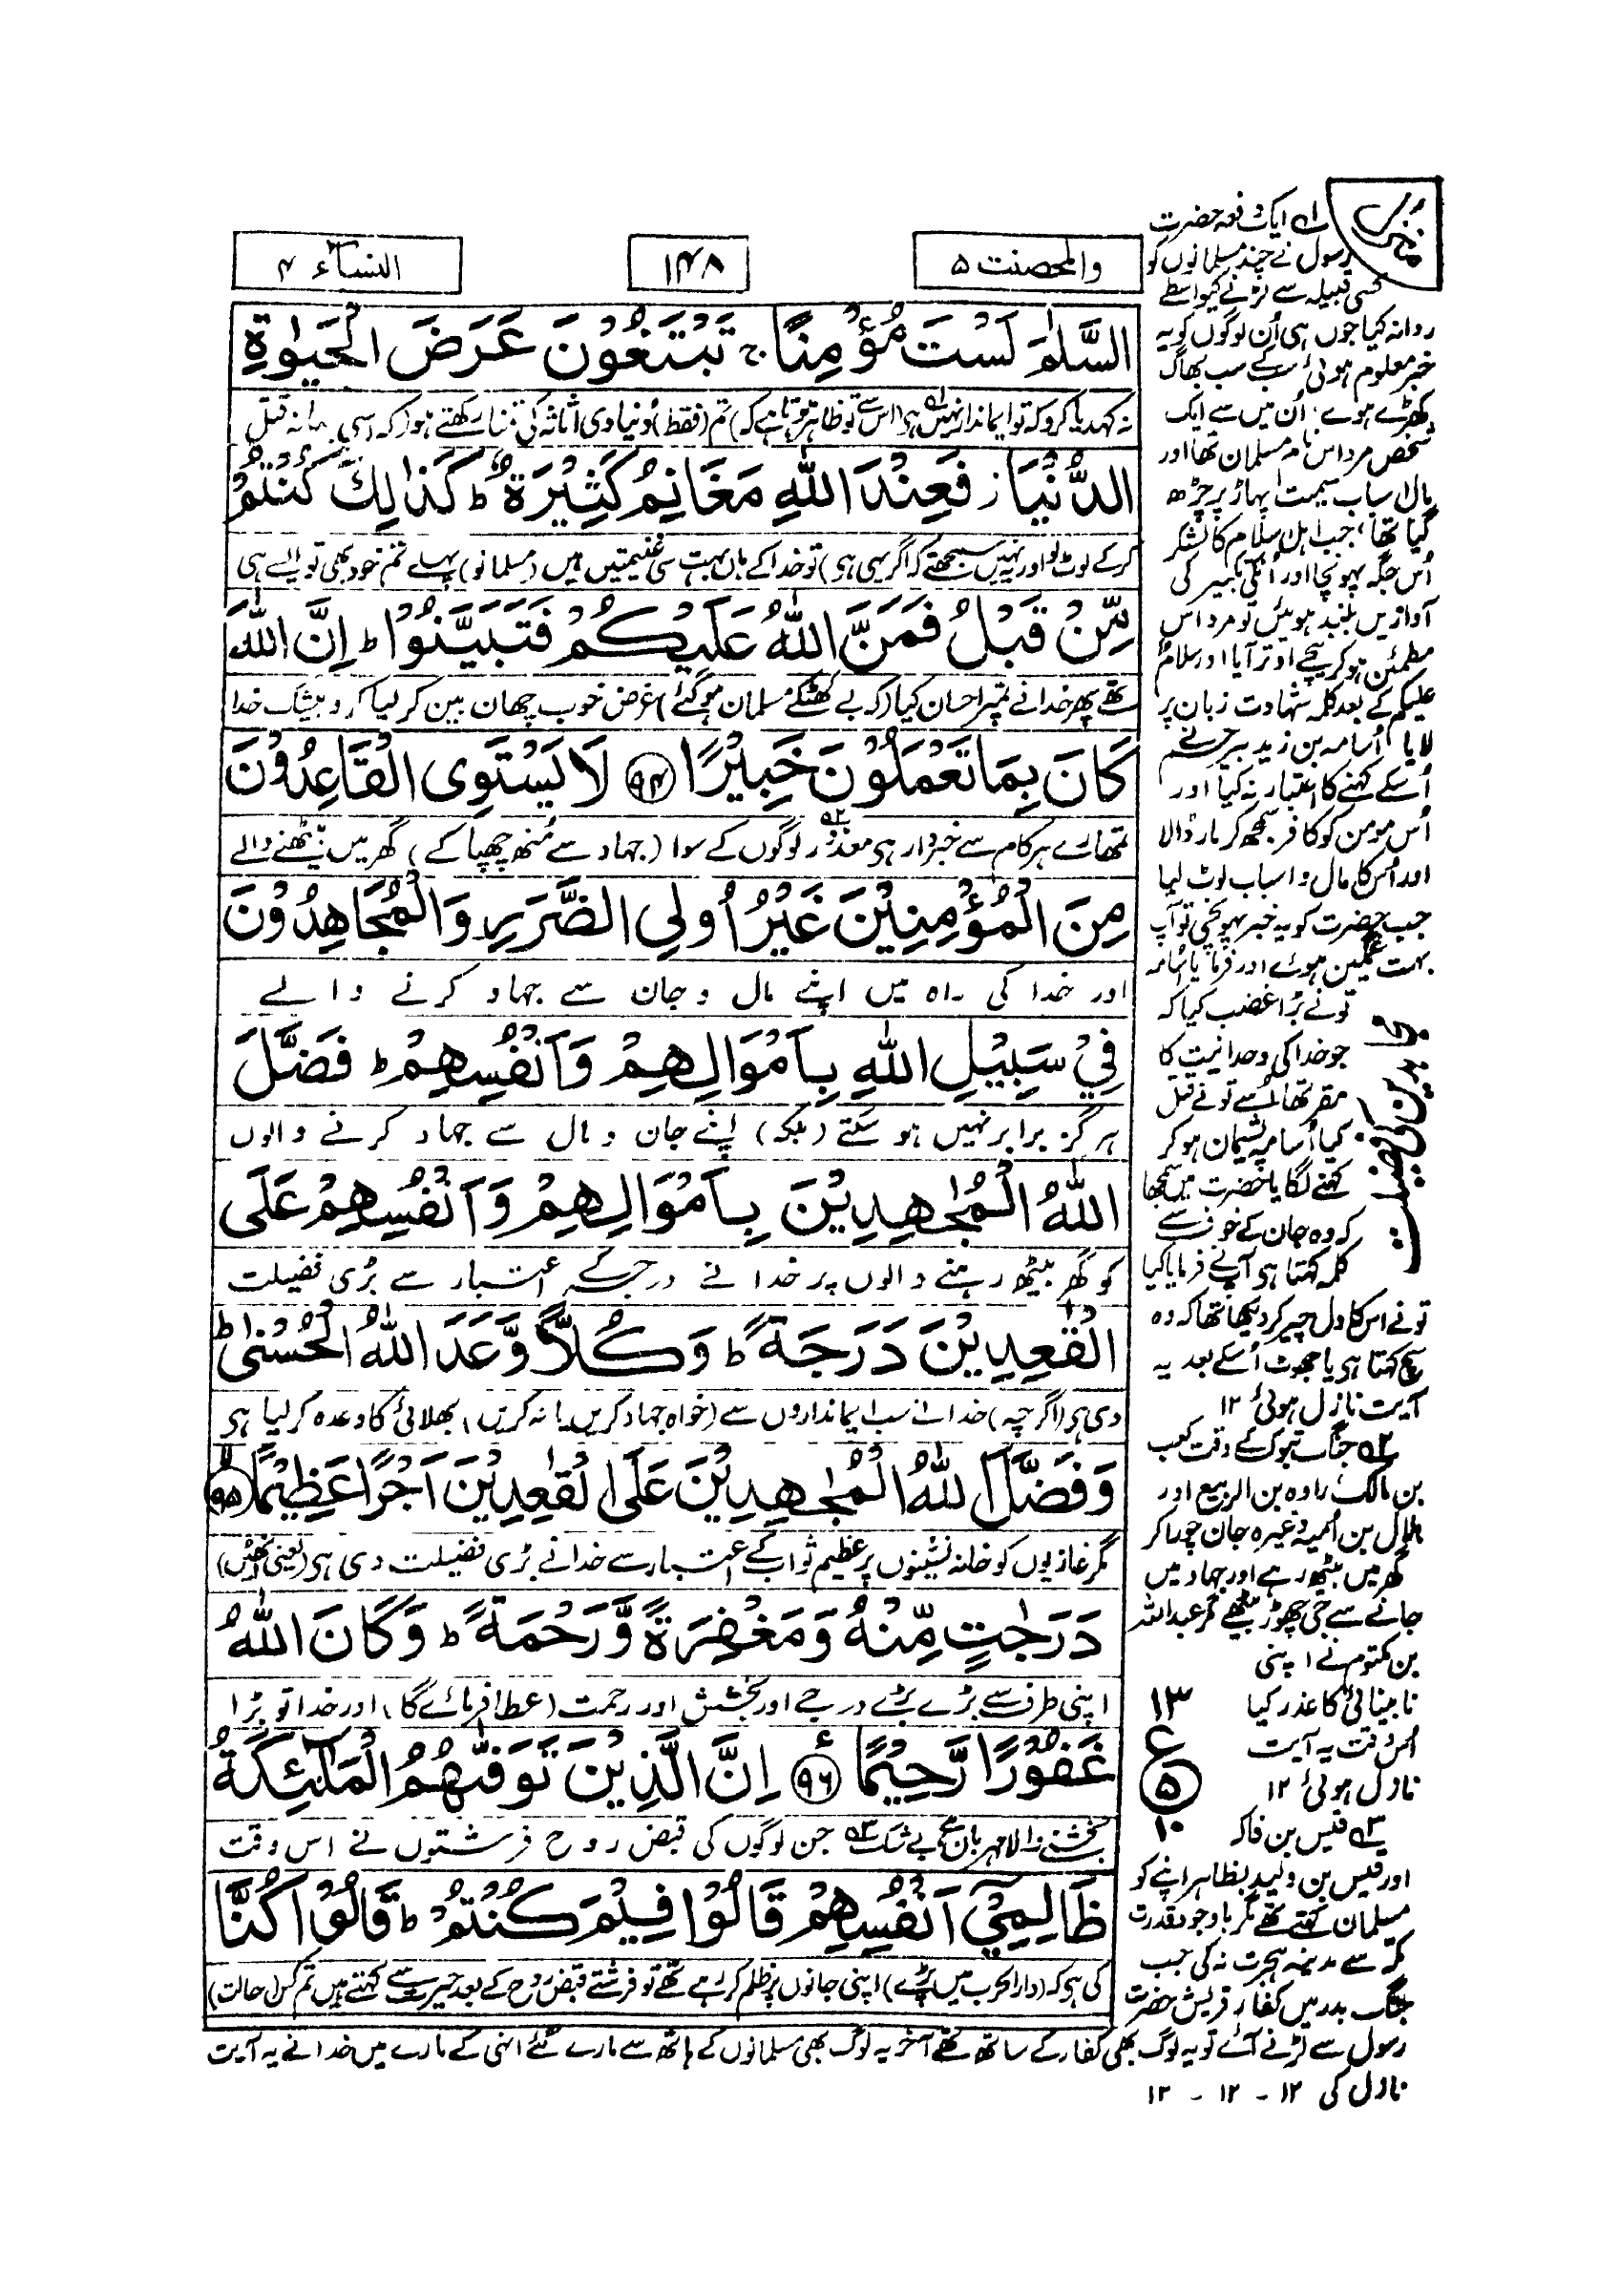 والمحصنت ۵
۱۴۸
النساء ۴
السَّلٰمَ لَسْتَ مُؤْمِنًا ۚ تَبْتَغُوْنَ عَرَضَ الْحَيٰوةِ
نہ کہدیا کرو کہ تو ایماندار نہیں ہی (اس سے تو ظاہر ہوتا ہے کہ) تم (فقط) دنیاوی اثاثہ کی تمنا رکھتے ہو (کہ اسی بہانہ قتل
الدُّنْيَا ز فَعِنْدَ اللّٰهِ مَغَانِمُ كَثِيْرَةٌ ط كَذٰلِكَ كُنْتُمْ
کرکے لوٹ لو اور نہیں سمجھتے کہ اگر یہی ہی) تو خدا کے ہاں بہت سی غنیمتیں ہیں (مسلمانو) پہلے تم خود بھی تو ایسے ہی
مِّنْ قَبْلُ فَمَنَّ اللّٰهُ عَلَيْكُمْ فَتَبَيَّنُوْا ط اِنَّ اللّٰهَ
تھے پھر خدا نے تمپر احسان کیا (کہ بے کھٹکے مسلمان ہوگئے) غرض خوب چھان بین کرلیا کرو بیشک خدا
كَانَ بِمَا تَعْمَلُوْنَ خَبِيْرًا ۹۴ لَا يَسْتَوِى الْقَاعِدُوْنَ
تمھارے ہر کام سے خبردار ہی معذور لوگوں کے سوا (جہاد سے منھ چھپا کے) گھر میں بیٹھنے والے
مِنَ الْمُؤْمِنِيْنَ غَيْرُ اُولِى الضَّرَرِ وَالْمُجَاهِدُوْنَ
اور خدا کی راہ میں اپنے مال و جان سے جہاد کرنے والے
فِيْ سَبِيْلِ اللّٰهِ بِاَمْوَالِهِمْ وَاَنْفُسِهِمْ ط فَضَّلَ
ہرگز برابر نہیں ہو سکتے (بلکہ) اپنے جان و مال سے جہاد کرنے والوں
اللّٰهُ الْمُجٰهِدِيْنَ بِاَمْوَالِهِمْ وَاَنْفُسِهِمْ عَلَى
کو گھر بیٹھ رہنے والوں پر خدا نے درجے کے اعتبار سے بڑی فضیلت
الْقٰعِدِيْنَ دَرَجَةً ط وَكُلًّا وَّعَدَ اللّٰهُ الْحُسْنٰى ط
دی ہی (اگرچہ) خدا نے سب ایمانداروں سے (خواہ جہاد کریں یا نہ کریں) بھلائی کا وعدہ کرلیا ہی
وَفَضَّلَ اللّٰهُ الْمُجٰهِدِيْنَ عَلَى الْقٰعِدِيْنَ اَجْرًا عَظِيْمًا ۹۵
مگر غازیوں کو خانہ نشینوں پر عظیم ثواب کے اعتبار سے خدا نے بڑی فضیلت دی ہی (یعنی انھیں)
دَرَجٰتٍ مِّنْهُ وَمَغْفِرَةً وَّرَحْمَةً ط وَكَانَ اللّٰهُ
اپنی طرف سے بڑے بڑے درجے اور بخشش اور رحمت (عطا فرمائے گا) اور خدا تو بڑا
غَفُوْرًا رَّحِيْمًا ۹۶ ع اِنَّ الَّذِيْنَ تَوَفّٰىهُمُ الْمَلٰٓئِكَةُ
بخشنے والا مہربان ہے بے شک ۳ جن لوگوں کی قبض روح فرشتوں نے اس وقت
ظَالِمِيْٓ اَنْفُسِهِمْ قَالُوْا فِيْمَ كُنْتُمْ ط قَالُوْا كُنَّا
کی ہی کہ (دارالحرب میں پڑے) اپنی جانوں پر ظلم کر رہے تھے تو فرشتے قبض روح کے بعد حیرت سے کہتے ہیں تم کس (حالت)
۱ ایک دفعہ حضرت
رسول نے چند مسلمانوں کو
کسی قبیلہ سے لڑنے کیواسطے
روانہ کیا جوں ہی اُن لوگوں کو یہ
خبر معلوم ہوئی سب کے سب بھاگ
کھڑے ہوے۔ اُن میں سے ایک
شخص مرداس نام مسلمان تھا اور
مال اسباب سمیت پہاڑ پر چڑھ
گیا تھا، جب اہل اسلام کا لشکر
اُس جگہ پہونچا اور اُنکی تکبیر کی
آوازیں بلند ہوئیں تو مرداس
مطمئن ہوکر نیچے اوتر آیا اور سلام
علیکم کے بعد کلمہ شہادت زبان پر
لایا اُسامہ بن زید نے
اُسکے کہنے کا اعتبار نہ کیا اور
اُس مومن کو کافر سمجھ کر مار ڈالا
اور اُس کا مال و اسباب لوٹ لیا
جب حضرت کو یہ خبر پہونچی تو آپ
بہت غمگین ہوئے اور فرمایا اُسامہ
تونے بڑا غضب کیا کہ
جو خدا کی وحدانیت کا
مقر تھا اُسے تونے قتل
کیا اُسامہ پشیمان ہوکر
کہنے لگا یا حضرت میں سمجھا
کہ وہ جان کے خوف سے
کلمہ کہتا ہی آپنے فرمایا کیا
تونے اس کا دل چیر کر دیکھا تھا کہ وہ
سچ کہتا ہی یا جھوٹ اُسکے بعد یہ
آیت نازل ہوئی ۱۲
۲ جنگ تبوک کے وقت کعب
بن مالک رادہ بن الربیع اور
ہلال بن اُمیہ وغیرہ جان چرا کر
گھر میں بیٹھ رہے اور جہاد میں
جانے سے جی چھوڑ بیٹھے مگر عبداللہ
بن مکتوم نے اپنی
نابینائی کا عذر کیا
اُس وقت یہ آیت
نازل ہوئی ۱۲
۱۳
ع
۵
۱۰
مجاہدین کی فضیلت
۳ قیس بن فاکہ
اور قیس بن ولید بظاہر اپنے کو
مسلمان کہتے تھے مگر باوجود قدرت
مکہ سے مدینہ ہجرت نہ کی جب
جنگ بدر میں کفار قریش حضرت
رسول سے لڑنے آئے تو یہ لوگ بھی کفار کے ساتھ تھے آخر یہ لوگ بھی مسلمانوں کے ہاتھ سے مارے گئے انہی کے بارے میں خدا نے یہ آیت
نازل کی ۱۲ - ۱۲ - ۱۲